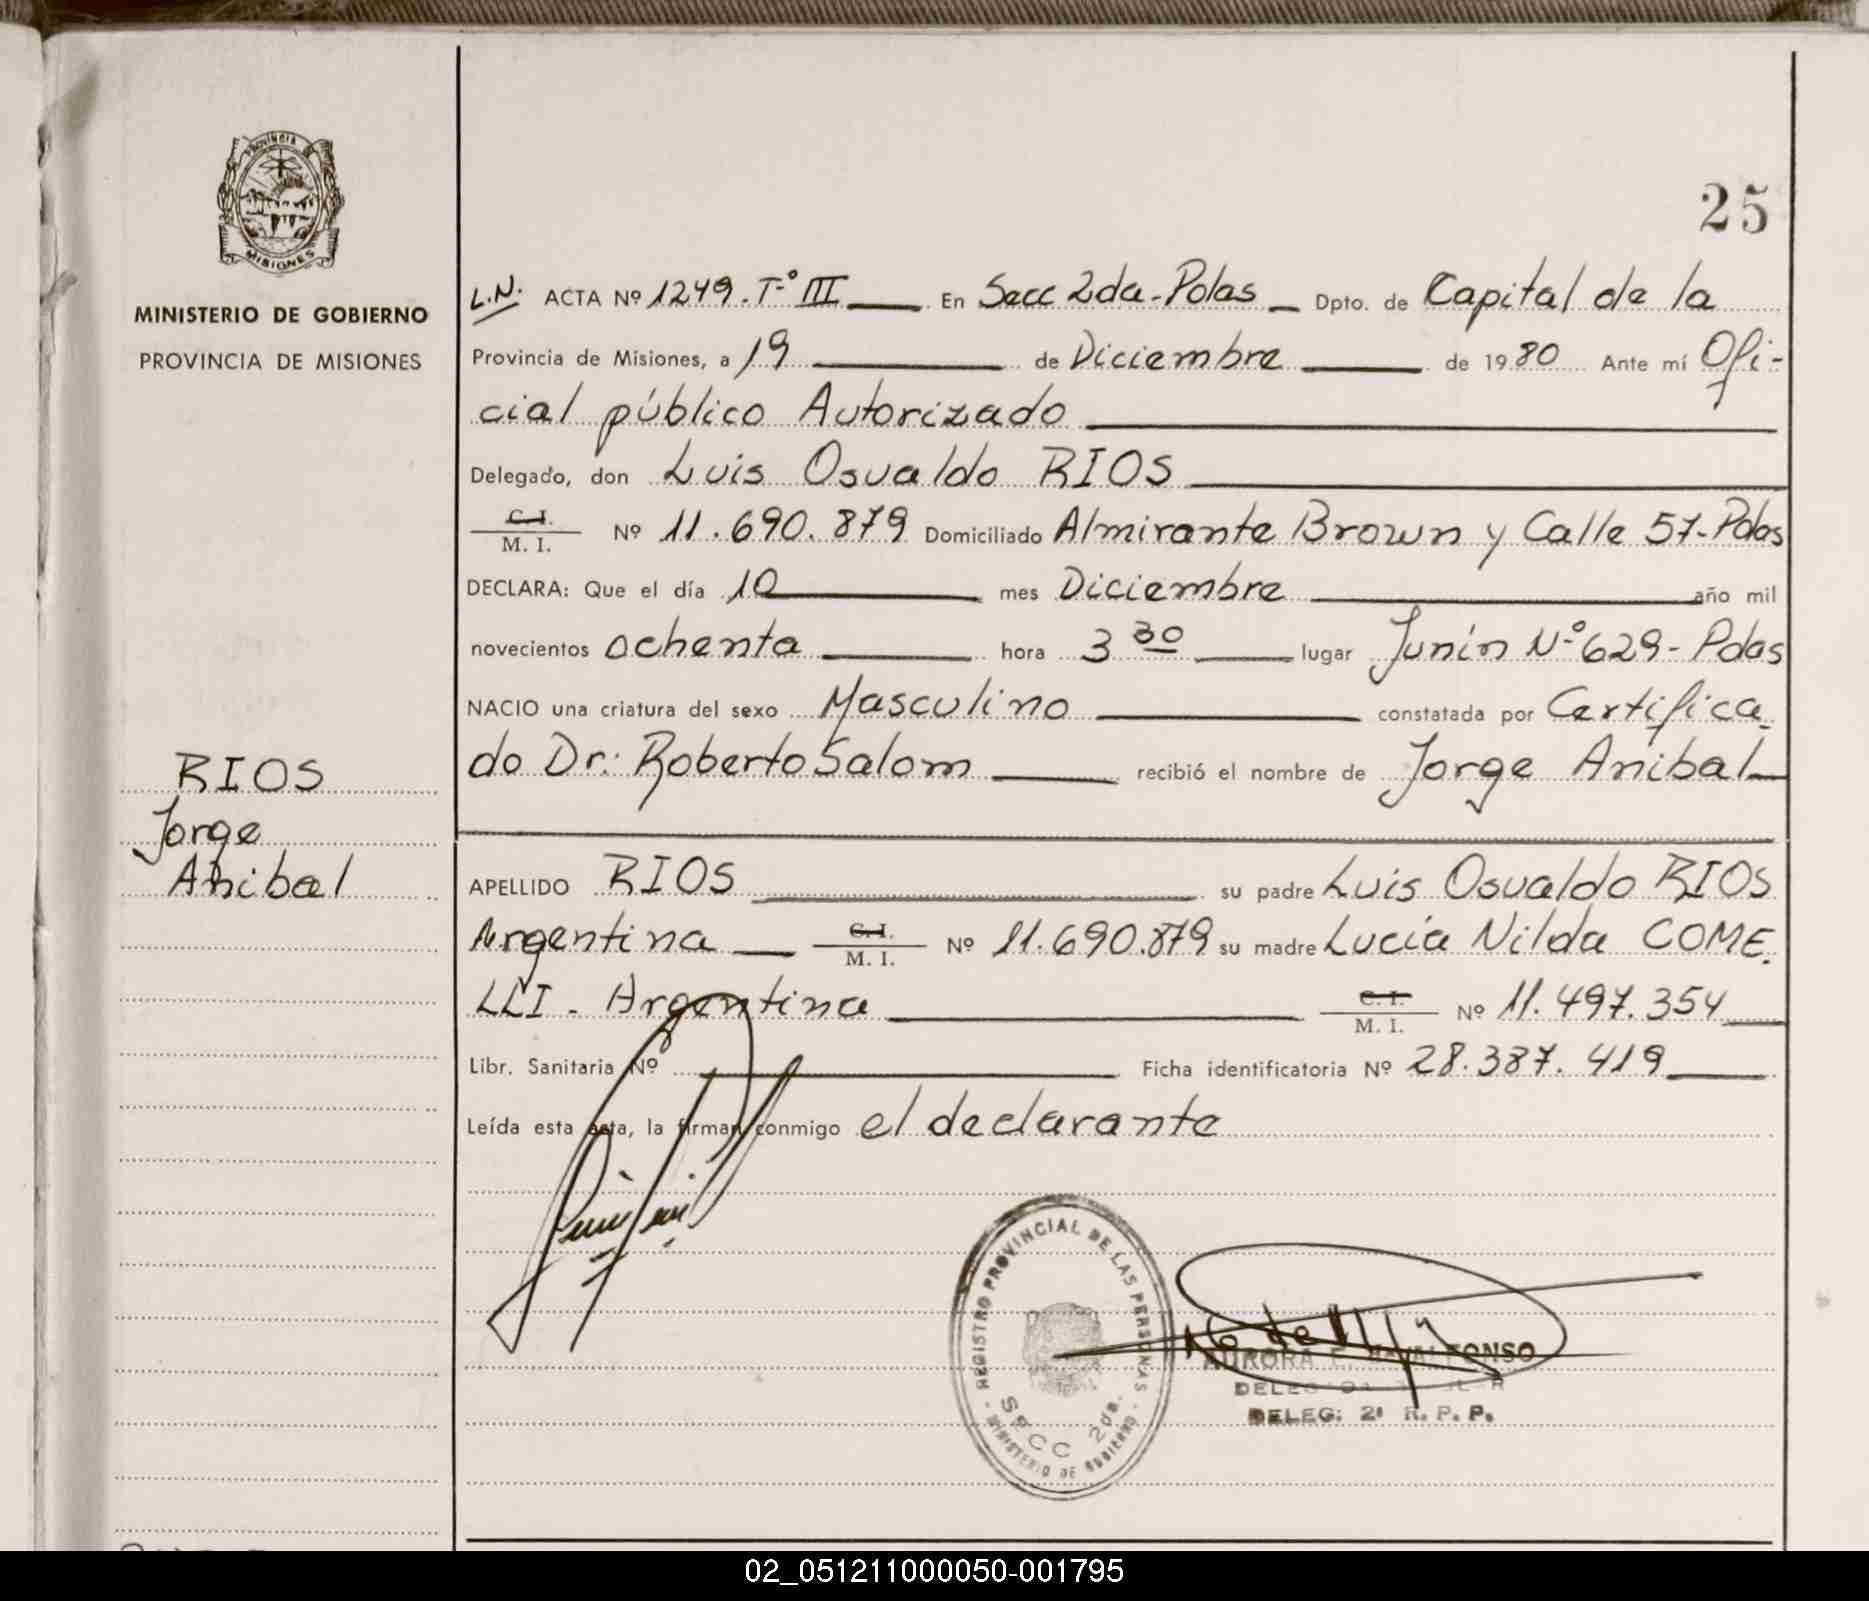 PROVINCIA DE
MISIONES
MINISTERIO DE GOBIERNO
PROVINCIA DE MISIONES
25
L.N. ACTA Nº 1249. T-º III En Secc 2da-Pdas Dpto. de Capital de la
Provincia de Misiones, a 19 de Diciembre de 1980 Ante mí Ofi-
cial público Autorizado
Delegado, don Luis Osvaldo RIOS
C.I.
M. I. Nº 11.690.879 Domiciliado Almirante Brown y Calle 57-Pdas
DECLARA: Que el día 10 mes Diciembre año mil
novecientos ochenta hora 3 30 lugar Junín N-º 629- Pdas
NACIO una criatura del sexo Masculino constatada por Certifica-
do Dr: Roberto Salom recibió el nombre de Jorge Anibal
RIOS
Jorge
Anibal
APELLIDO RIOS su padre Luis Osvaldo RIOS
Argentina C.I.
M. I. Nº 11.690.879 su madre Lucía Nilda COME-
LLI - Argentina C.I.
M. I. Nº 11.497.354
Libr. Sanitaria Nº Ficha identificatoria Nº 28.387.419
Leída esta acta, la firman conmigo el declarante
REGISTRO PROVINCIAL DE LAS PERSONAS
SECC 2da.
MINISTERIO DE GOBIERNO
AURORA E. ALFONSO
DELEG: 2ª R. P. P.
02_051211000050-001795